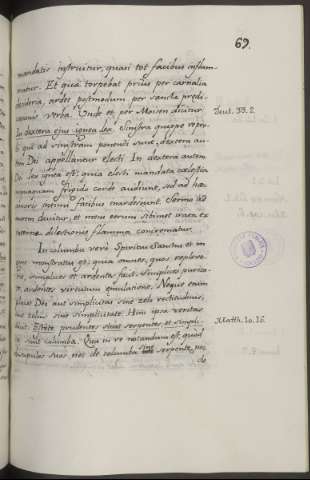 69.
mandatis instruitur, quasi tot facibus inflam-
matur. Et quae torpebat prius per carnalia
desideria, ardet postmodum per sanctae praedi-
cationis verba. Unde et per Moisen dicitur:
Deut. 33. 2
In dextera ejus ignea lex. Sinistra quippe repro-
bi qui ad vindictam ponendi sunt, dextera au-
tem Dei appellantur electi. In dextera autem
Dei lex ignea est: quia electi mandata coelestia
nequaquam frigido corde audiunt, sed ad haec
amoris intimi facibus inardescunt. Sermo ad
aurem ducitur, et mens eorum sibimet irata ex
internae dilectionis flamma concrematur.
In columba vero Spiritus Sanctus et in
igne monstratus est: quia omnes, quos repleve-
rit, simplices et ardentes facit. Simplices purita-
te, ardentes virtutum emulatione. Neque enim
placere Deo aut simplicitas sine zelo rectitudinis,
aut zelus sine simplicitate. Hinc ipsa veritas
ait: Estote prudentes sicut serpentes et simpli-
Matth. 10. 16.
ces sicut columbae. Qua in re notandum est, quod
discipulos suos nec de columba sine serpente, nec
de